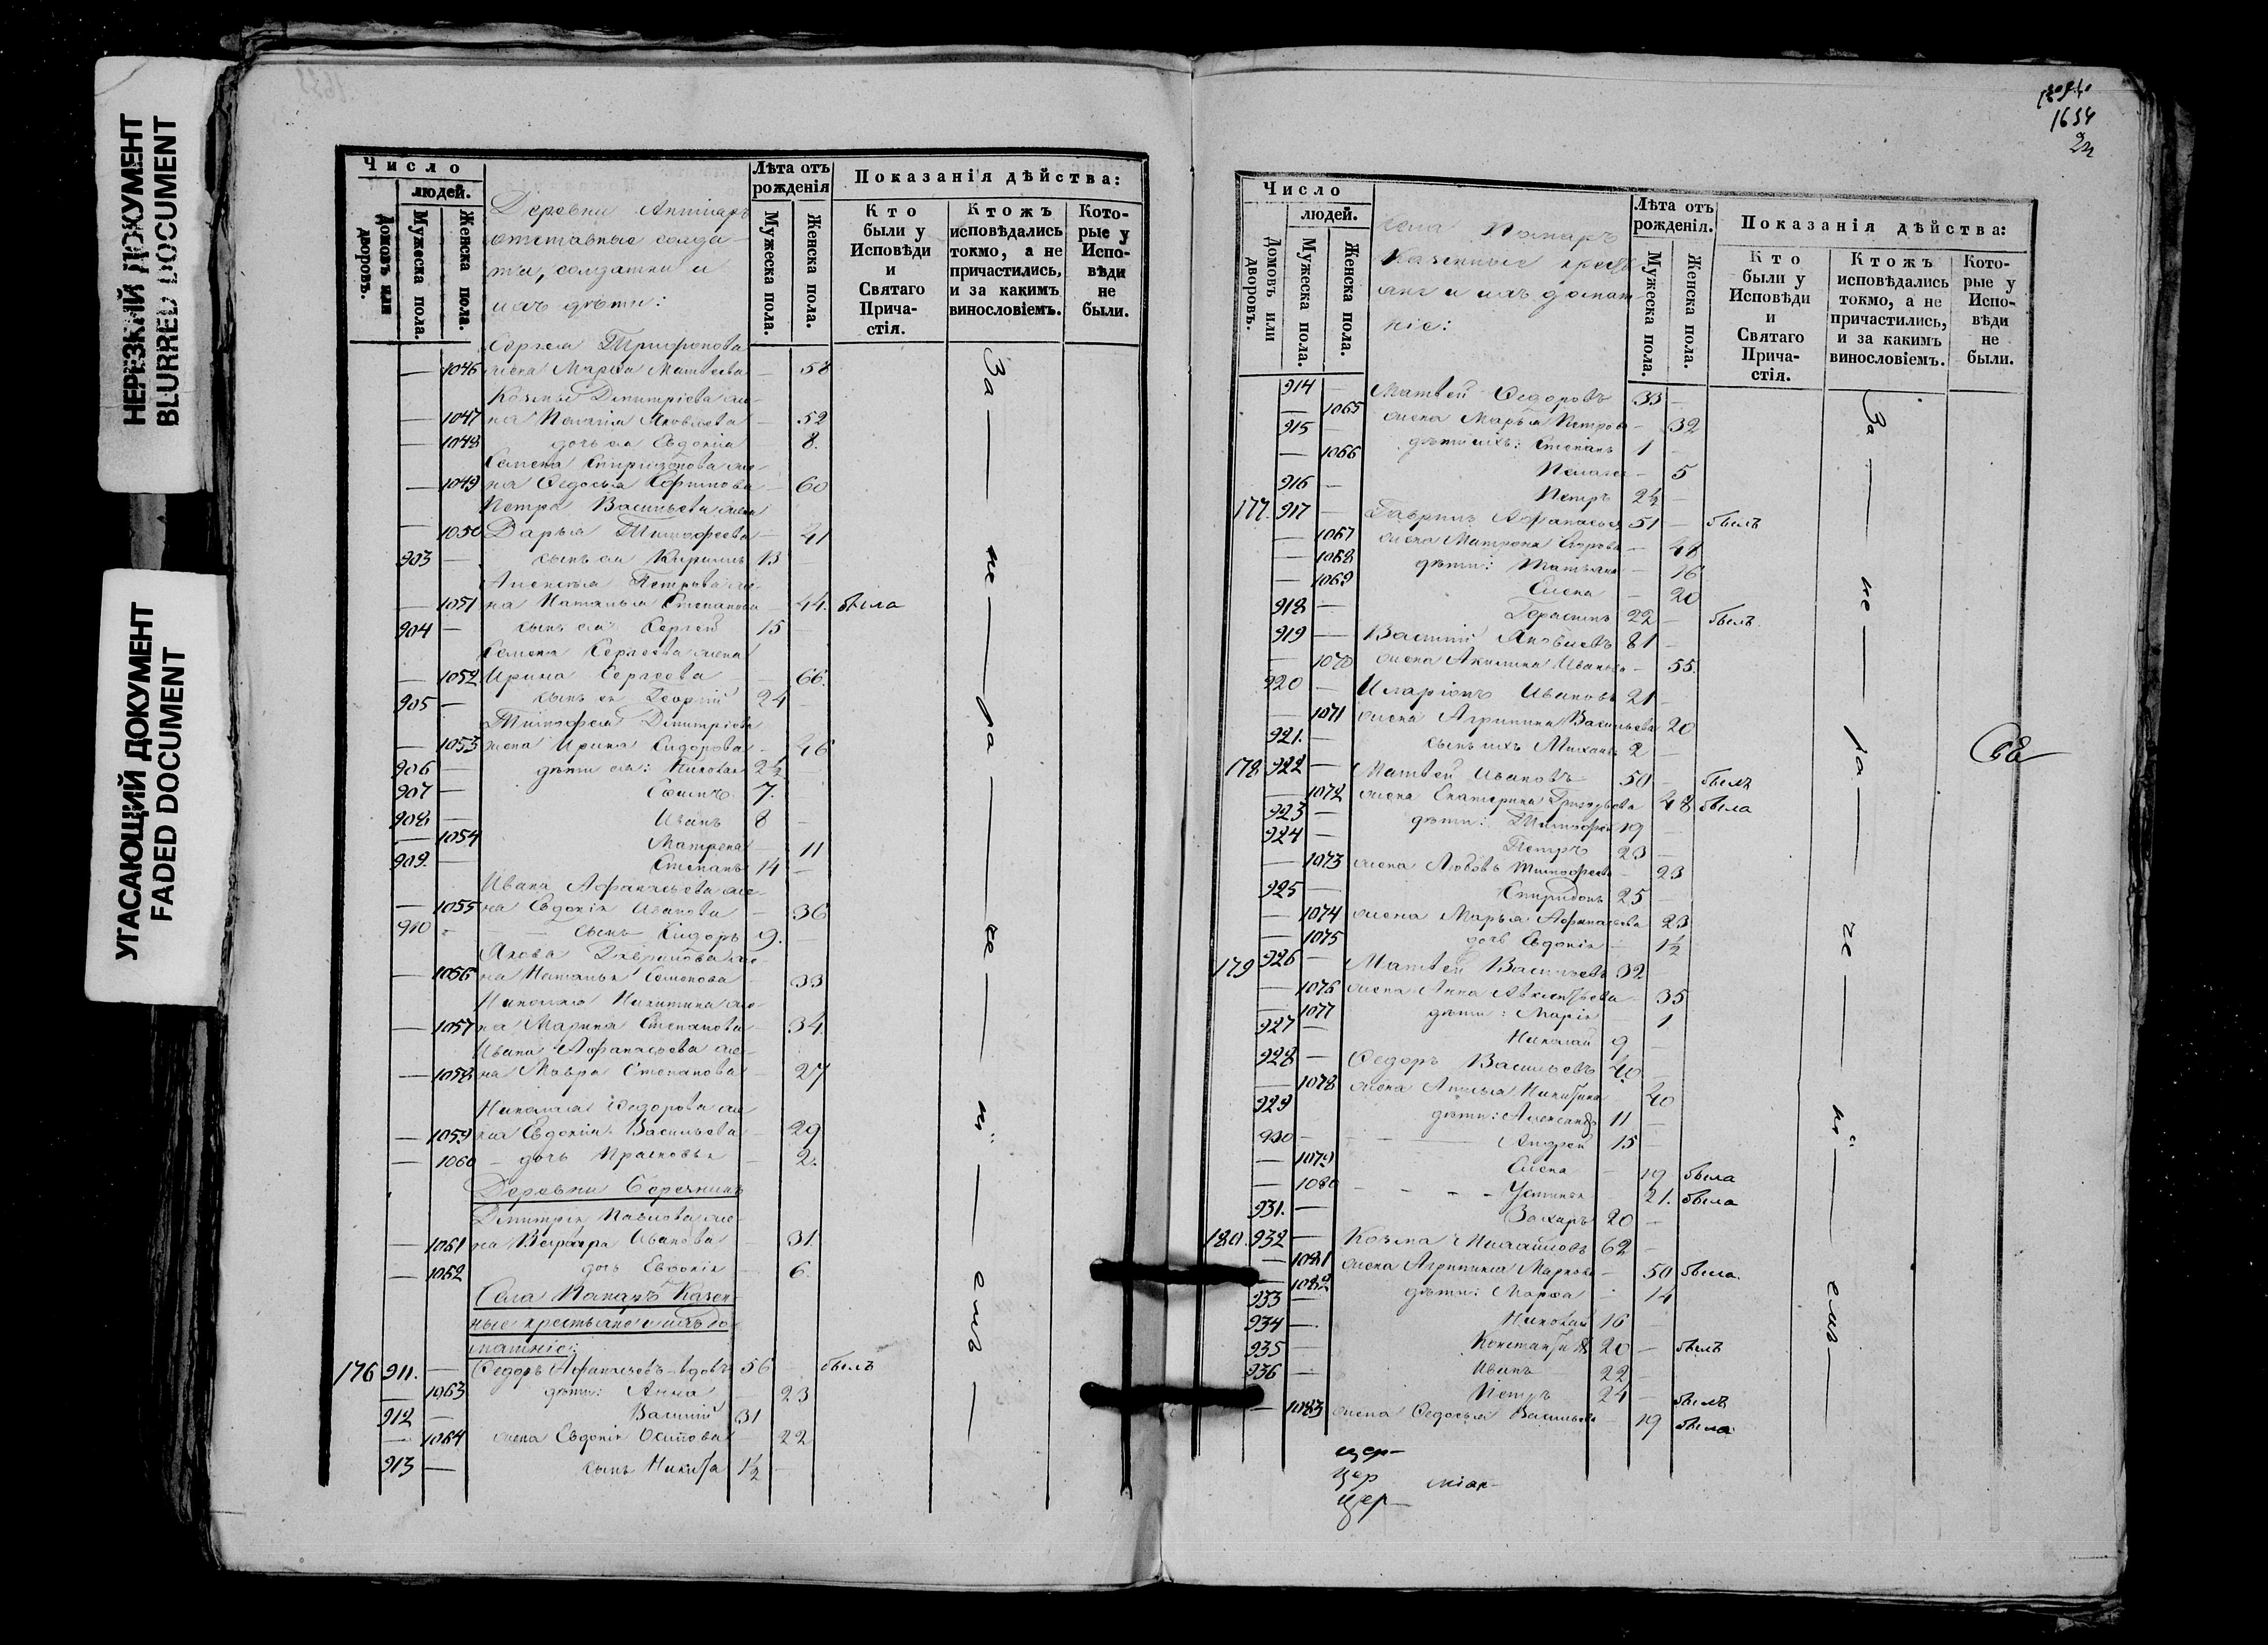 НЕРЕЗКИЙ ДОКУМЕНТ
BLURRED DOCUMENT
УГАСАЮЩИЙ ДОКУМЕНТ
FADED DOCUMENT
Число
людей.
Домовъ или дворовъ.
Мужеска пола.
Женска пола.
Деревни
отставные солда-
ты, солдатки и
ихъ дѣти:
Лѣта отъ рожденія
Мужеска пола.
Женска пола.
Показанія дѣйства:
Кто были у Исповѣди и Святаго Прича-стія.
Ктожъ исповѣдались токмо, а не причастились, и за какимъ винословіемъ.
Кото-рые у Испо-вѣди не были.
Трифонова
— 1046 жена Марѳа Матвеева — 58
Козмы Димитріева же-
— 1047 на Пелагія Яковлева — 52
— 1048 дочь ея Евдокія — 8.
Семена Спиридонова же-
— 1049 на Ѳедосья — 60
Петра Васильева жена
— 1050 Дарья Тимофеева — 41
903 — сынъ ея Кирилъ 13 —
Алексея Петрова же-
— 1051 на Наталья Степанова — 44. была
904 — сынъ ея Сергей 15 —
Семена Сергеева жена
— 1052 Ирина Сергеева — 66.
905 — сынъ ея Георгій 24 —
Тимофея Димитріева
— 1053 жена Ирина Сидорова — 46
906 — дѣти ея: Николай 2½ —
907 — 7.
908 — Иванъ 8 —
— 1054 Матрена — 11
909. — Степанъ 14 —
Ивана Афанасьева же-
— 1055 на Евдокія Иванова — 36
910 — сынъ Сидоръ 9. —
Якова Гаврилова же-
— 1056 на Наталья Семенова — 33
Николая Никитина же-
— 1057 на Марина Степанова — 34
Ивана Афанасьева же-
— 1058 на Мавра Степанова — 27
Николая Ѳедорова же
— 1059 на Евдокія Васильева — 29
— 1060 — дочь Прасковья — 2.
Деревни
Димитрія Павлова же-
— 1061 на Варвара Иванова — 31.
— 1062 дочь Евдокія — 6.
Села Казен-
ные крестьяне и ихъ до
машніе:
176 911. — Ѳедоръ Афанасьевъ вдовъ 56 былъ
— 1063 дѣти: Анна — 23
912 — Василій 31
— 1064 жена Евдокія Осипова — 22
913 — сынъ Никита 1½ —
За — не — ра — че — ні — емъ —
1654
Число
людей.
Домовъ или дворовъ.
Мужеска пола.
Женска пола.
Села
Казенные крестья
ане и ихъ домаш
ніе:
Лѣта отъ рожденія.
Мужеска пола.
Женска пола.
Показанія дѣйства:
Кто были у Исповѣди и Святаго Прича-стія.
Ктожъ исповѣдались токмо, а не причастились, и за какимъ винословіемъ.
Кото-рые у Испо-вѣди не были.
914 — Матвей Ѳедоровъ 33 —
— 1065 жена Марья Петрова — 32
915 — дѣти ихъ: Степанъ 1 —
— 1066 Пелагея — 5
916 — Петръ 2½ —
177. 917 — Гаврилъ Афанасьевъ 51 — былъ
— 1067 жена Матрона — 48
— 1068 дѣти: Татьяна — 16
— 1069 Елена — 20
918 — Герасимъ 22 — былъ.
919 — Василій Яковлевъ 81 —
— 1070 жена Акилина Иванова — 55.
920 — Иларіонъ Ивановъ 21 —
— 1071 жена Агрипина Васильева 20
921. — сынъ ихъ Михаилъ 2 —
178 922 — Матвей Ивановъ 50 — былъ
— 1072 жена Екатерина Григорьева 48 была
923 — дѣти: Тимофей 19 —
924 — Петръ 23 —
— 1073 жена Любовь Тимофеева — 23
925 — Спиридонъ 25 —
— 1074 жена Марья Афанасьева 23
— 1075 дочь Евдокія — 1½
179 926 — Матвей Васильевъ 32
— 1076 жена Анна — 35
— 1077 дѣти: Марія 1
927 — Николай 9 —
928 — Ѳедоръ Васильевъ 40 —
— 1078 жена Никитина 40
929 дѣти: Александръ 11 —
930 — Андрей 15 —
— 1079 Елена — 19 была
— 1080 Устинья 21. была
931. — Захаръ 20 —
180. 932 — Козма Михайловъ 62 —
— 1081 жена Агрипина Маркова — 50 была.
— 1082 дѣти: Марѳа — 14
933 — Николай 16 —
934 — Константинъ 20 — былъ
935 — Иванъ 22 —
936 — Петръ 24 — былъ
— 1083 жена Ѳедосья Васильева — 19 была
За — не — ра — че — ні — емъ —
цер—
цер
цер—